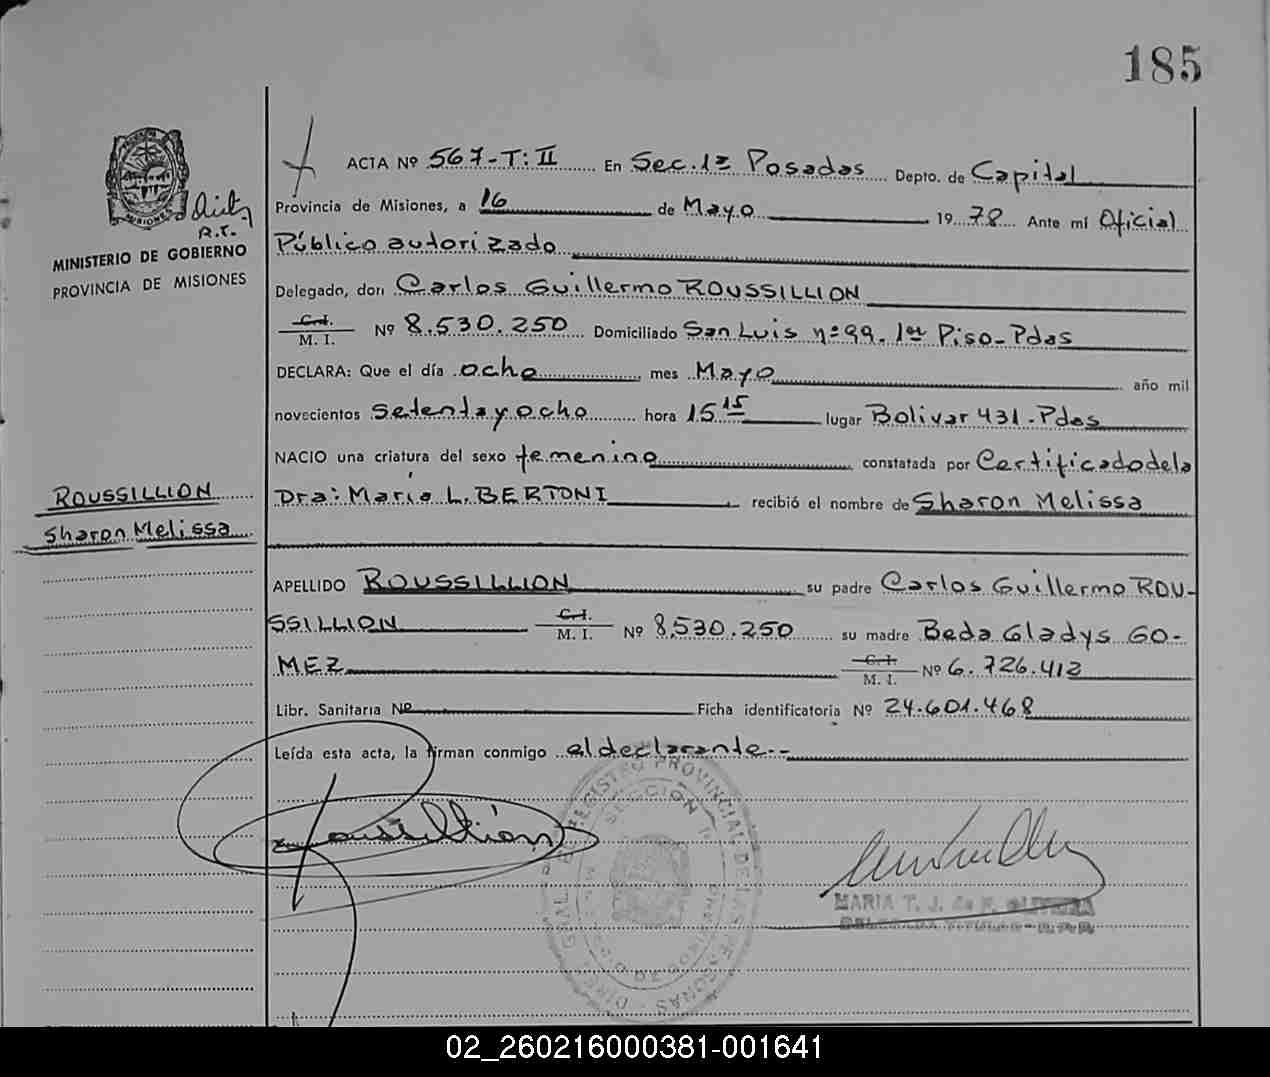 185
ACTA Nº 567-T: II En Sec. 1ª Posadas Depto. de Capital
Provincia de Misiones, a 16 de Mayo 1978 Ante mí Oficial
Público autorizado
Delegado, don Carlos Guillermo ROUSSILLION
C. I.
M. I. Nº 8.530.250 Domiciliado San Luis nº 99. 1er Piso - Pdas
DECLARA: Que el día ocho mes Mayo año mil
novecientos setenta y ocho hora 15 15 lugar Bolivar 431 - Pdas
NACIO una criatura del sexo femenino constatada por Certificado de la
Dra: María L. BERTONI recibió el nombre de Sharon Melissa
APELLIDO ROUSSILLION su padre Carlos Guillermo ROU-
SSILLION C. I.
M. I. Nº 8.530.250 su madre Beda Gladys GO-
MEZ C. I.
M. I. Nº 6.726.412
Libr. Sanitaria Nº Ficha identificatoria Nº 24.601.468
Leída esta acta, la firman conmigo el declarante.-
MISIONES
R.T.
MINISTERIO DE GOBIERNO
PROVINCIA DE MISIONES
ROUSSILLION
Sharon Melissa
Roussillión
REGISTRO PROVINCIAL DE LAS PERSONAS
SECCION 1ª
MARIA T. J. de F. OLIVEIRA
DELEGADA TITULAR - R.P.P.
02_260216000381-001641